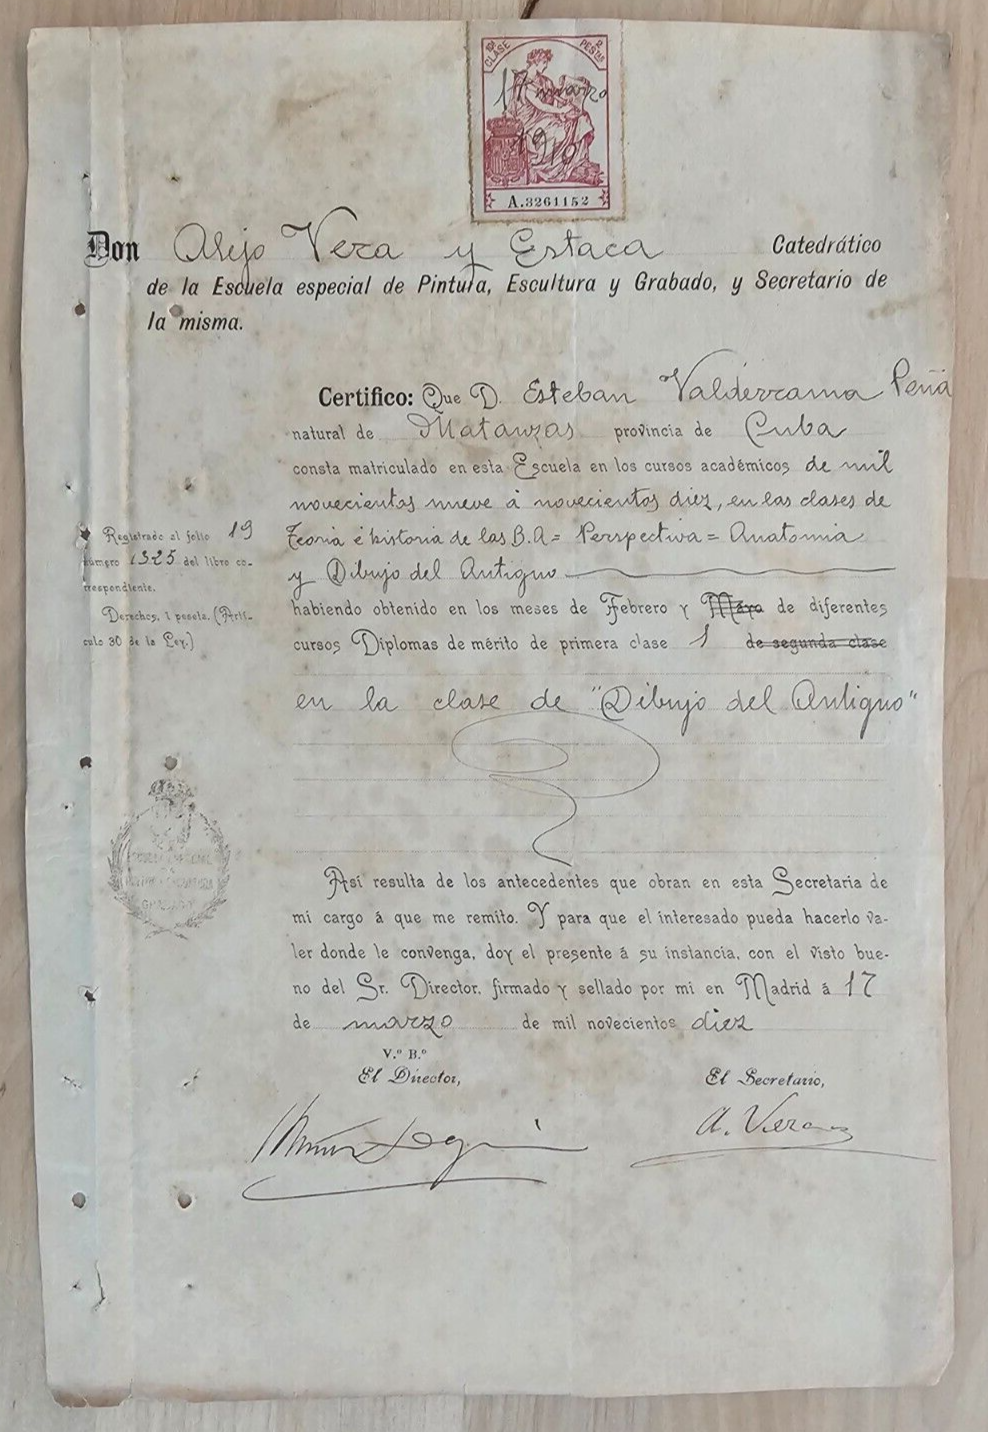 10ª CLASE
2 PESTAS
17 marzo
1910
A.3261152
Don Alejo Vera y Estaca Catedrático
de la Escuela especial de Pintura, Escultura y Grabado, y Secretario de
la misma.
Certifico: Que D. Esteban Valderrama Peña
natural de Matanzas provincia de Cuba
consta matriculado en esta Escuela en los cursos académicos de mil
novecientos nueve á novecientos diez, en las clases de
Teoria é historia de las B.A = Perspectiva = Anatomia
y Dibujo del Antiguo
habiendo obtenido en los meses de Febrero y Mayo de diferentes
cursos Diplomas de mérito de primera clase 1 de segunda clase
en la clase de "Dibujo del Antiguo"
Registrado al folio 19
número 1325 del libro co-
rrespondiente.
Derechos, 1 peseta. (Artí-
culo 30 de la Ley.)
GRABADO
Así resulta de los antecedentes que obran en esta Secretaria de
mi cargo á que me remito. Y para que el interesado pueda hacerlo va-
ler donde le convenga, doy el presente á su instancia, con el visto bue-
no del Sr. Director, firmado y sellado por mi en Madrid á 17
de marzo de mil novecientos diez
V.º B.º
El Director,
El Secretario,
A. Vera